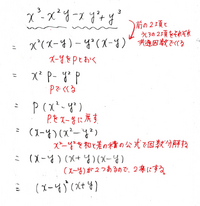 x³-x²y-xy²+y³
前の2項と
次の2項をそれぞれ
共通因数でくくる
= x²(x-y)-y²(x-y)
x-yをPとおく
= x²P-y²P
Pでくくる
= P(x²-y²)
Pをx-yに戻す
= (x-y)(x²-y²)
x²-y²を和と差の積の公式で因数分解する
= (x-y)(x+y)(x-y)
(x-y)が2つあるので、2乗にする
= (x-y)²(x+y)